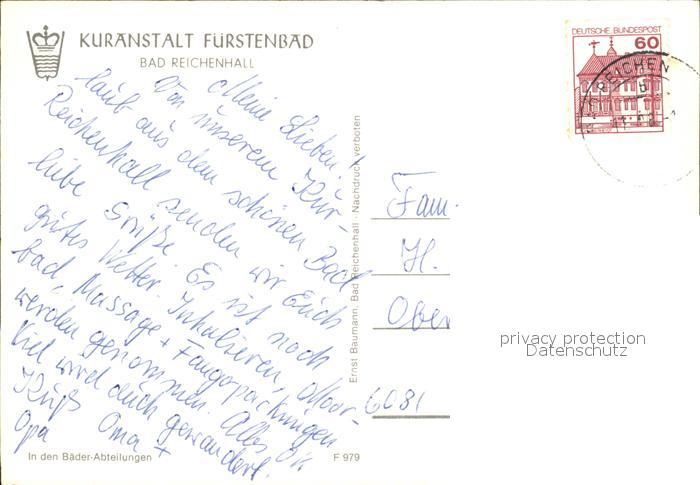 KURANSTALT FÜRSTENBAD
BAD REICHENHALL
Meine Lieben!
Von unserem Kur-
laub aus dem schönen Bad
Reichenhall senden wir Euch
liebe Grüße. Es ist noch
gutes Wetter. Inhalieren, Moor-
bad, Massage + Fangopackungen
werden genommen. Alles ok
Viel wird auch gewandert.
Kuß Oma +
Opa
In den Bäder-Abteilungen
F 979
Ernst Baumann, Bad Reichenhall · Nachdruck verboten
DEUTSCHE BUNDESPOST
60
REICHEN
Fam.
H.
Ober
6081
privacy protection
Datenschutz